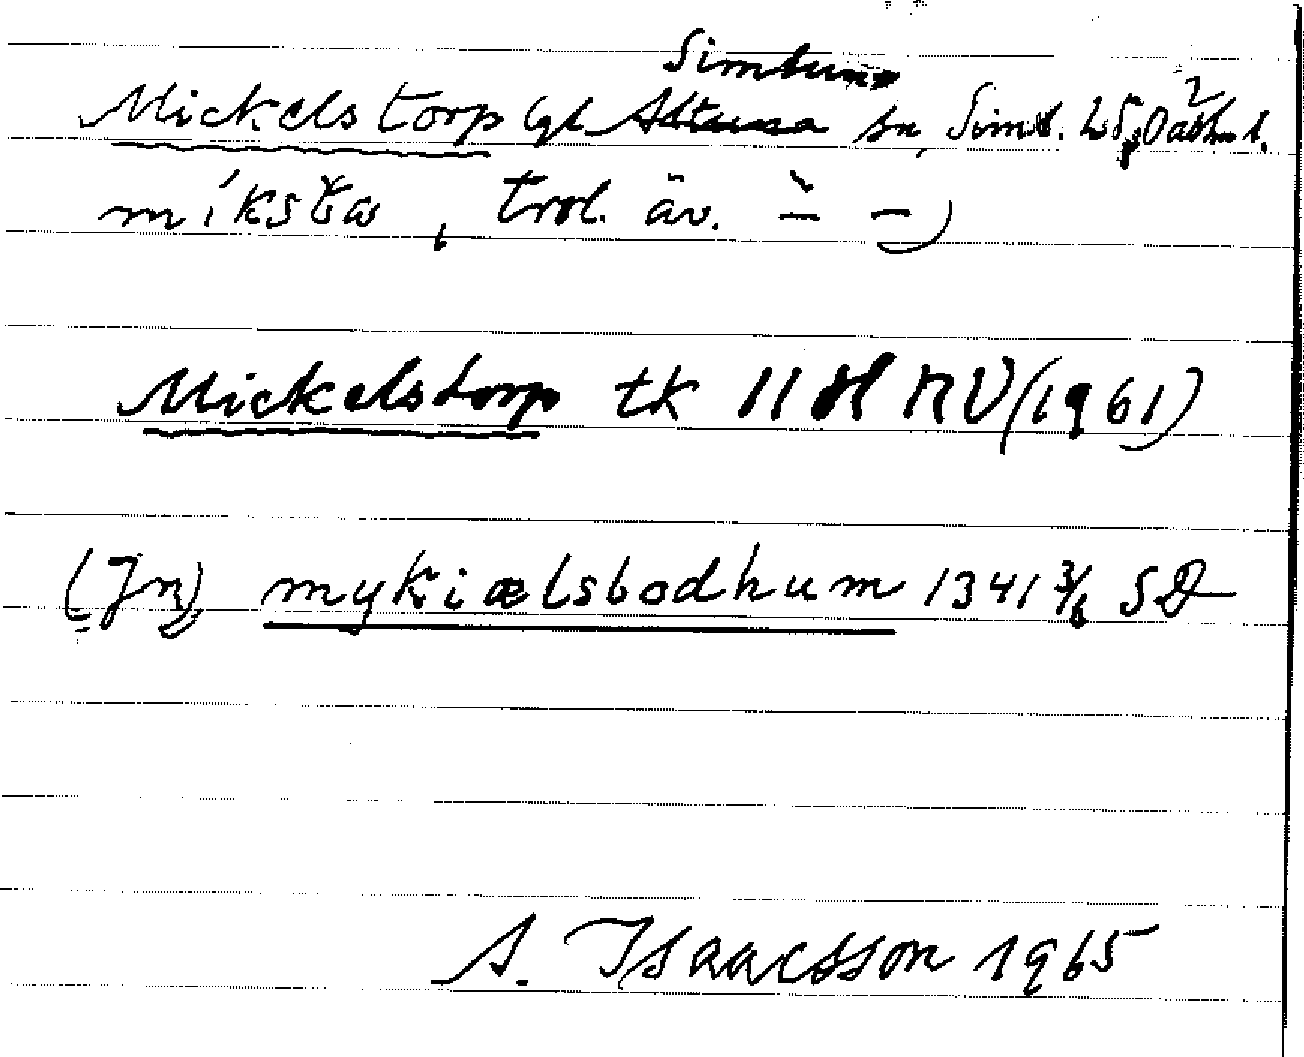 Simtuna
Mickelstorp lgh Altuna sn, Simt. hd,
míksta, trol. äv. ` –)
Mickelstorp tk 11 H NV (1961)
(Jn) mykiælsbodhum 1341 3/6 SD
A. Isaacsson 1965